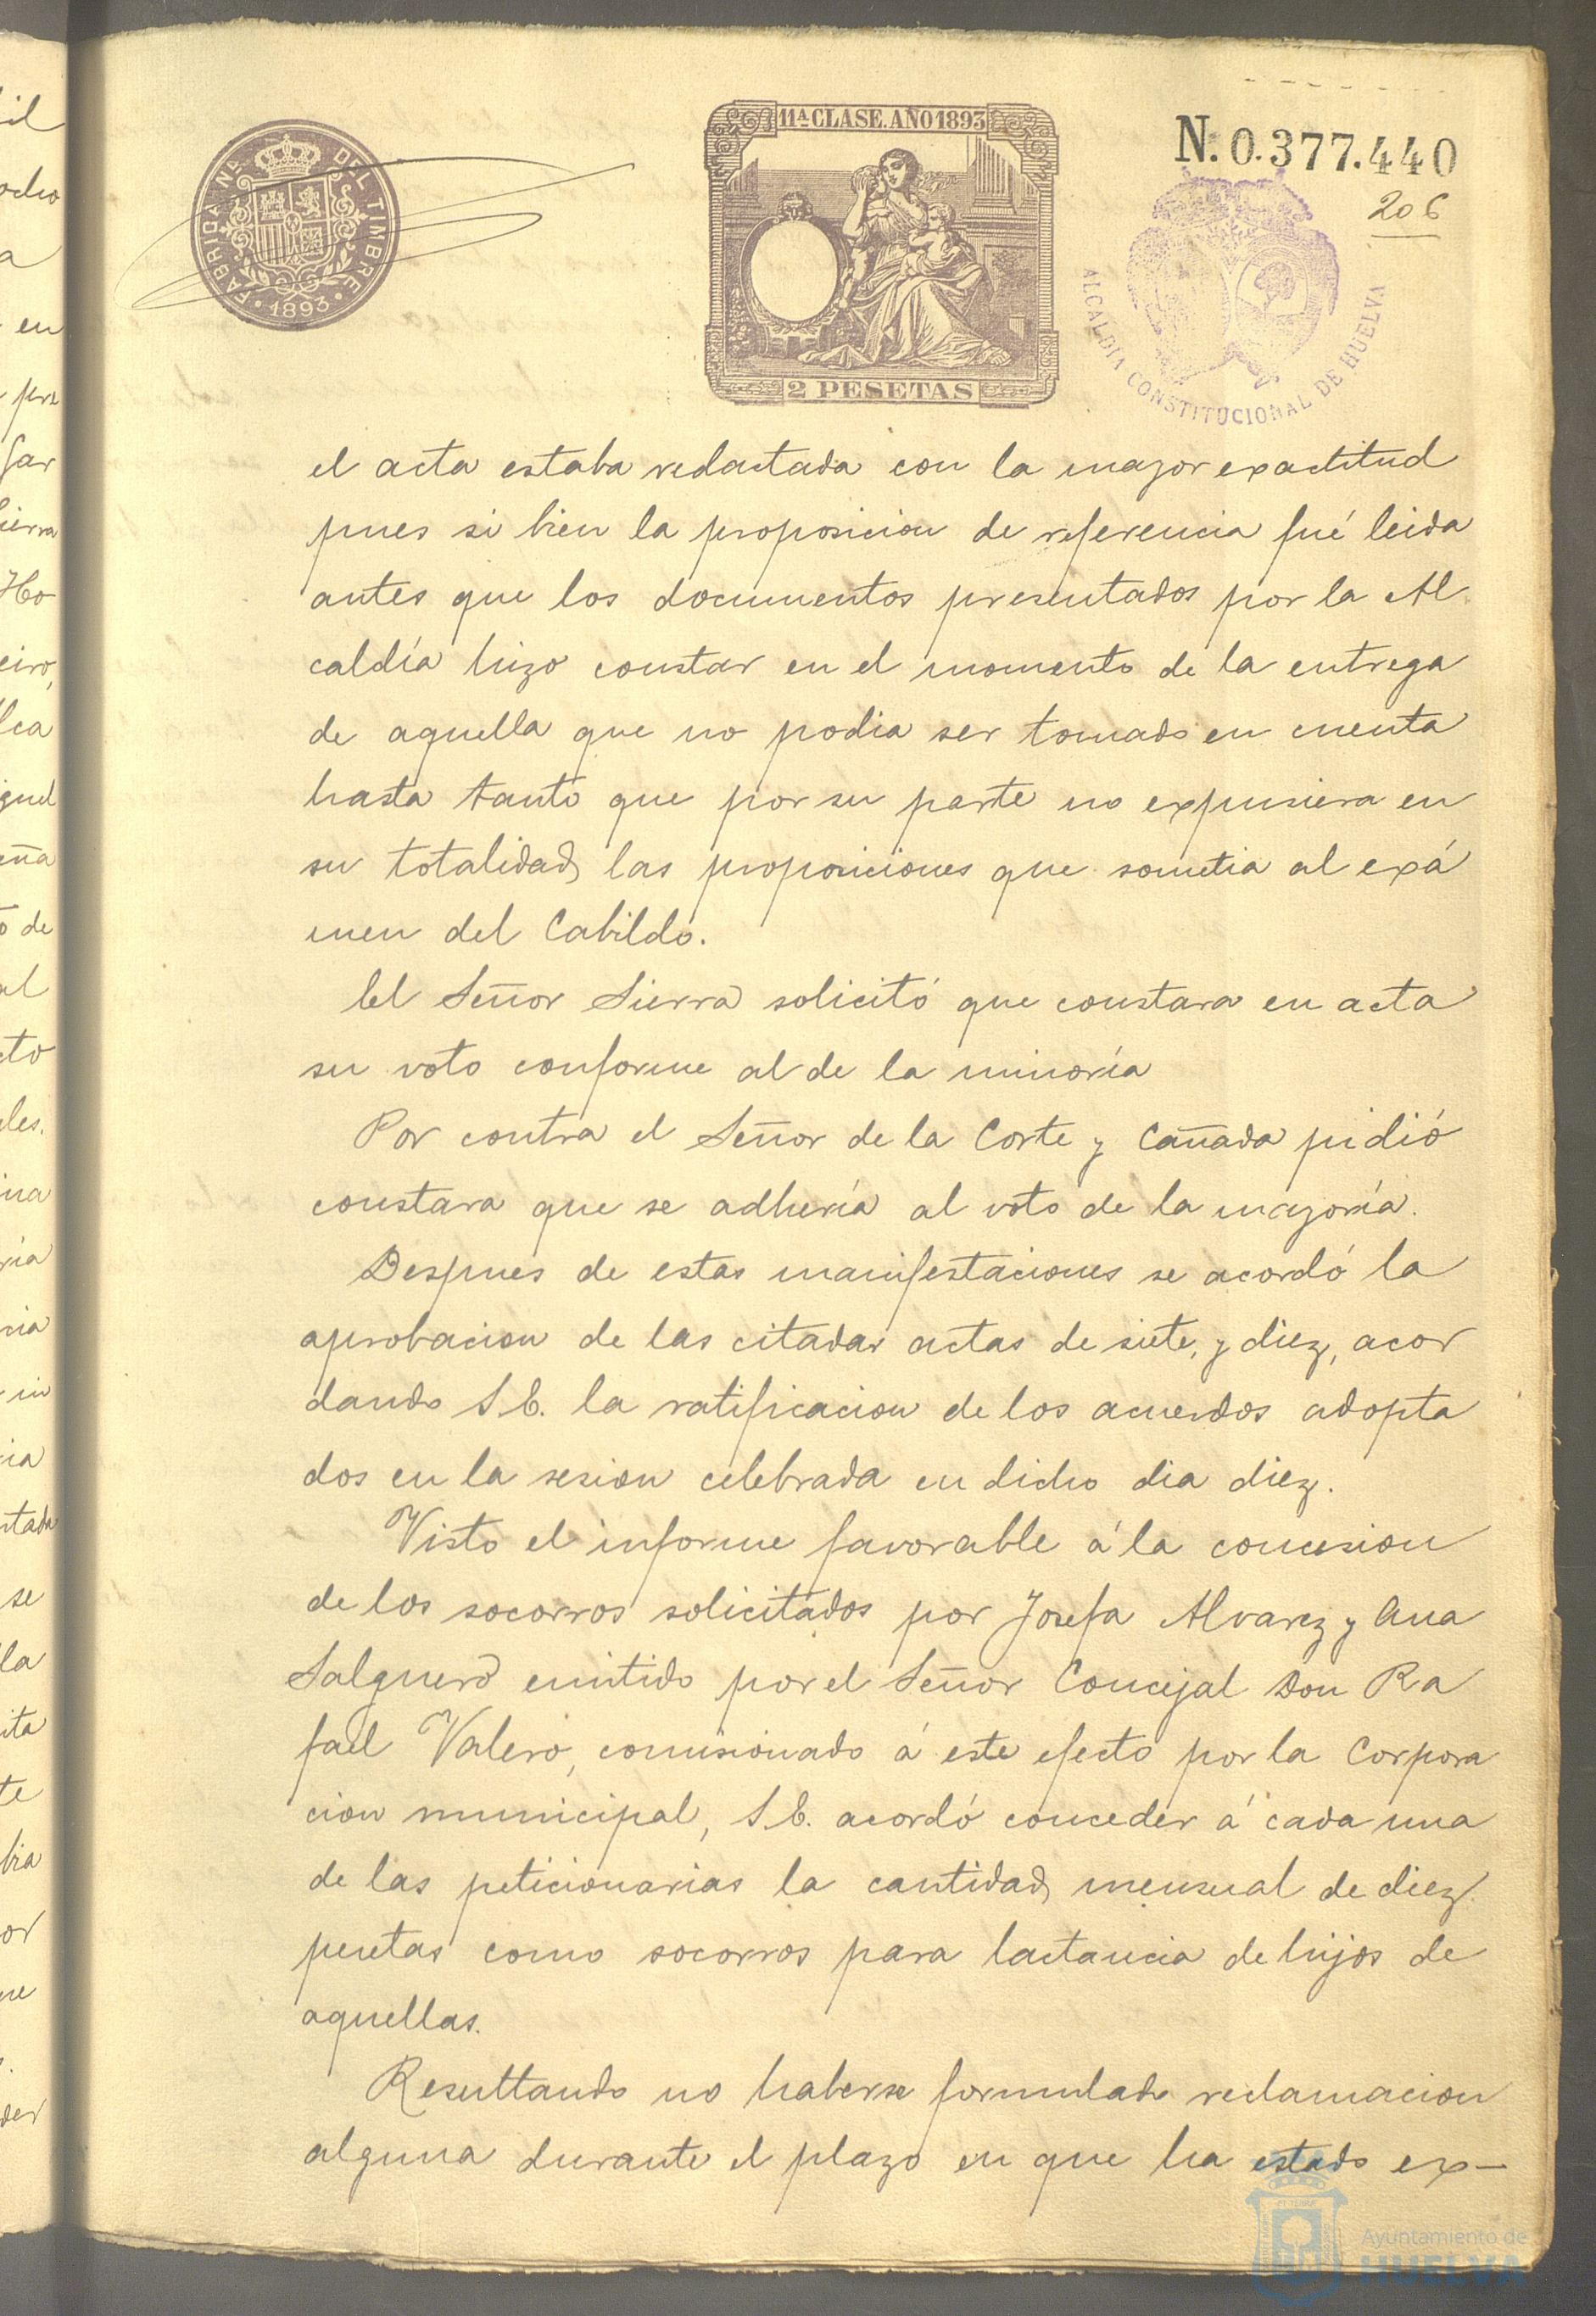 FABRICA NAL. DEL TIMBRE
1893
11ª CLASE. AÑO 1893
2 PESETAS
N. 0.377.440
206
ALCALDIA CONSTITUCIONAL DE HUELVA
el acta estaba redactada con la mayor exactitud
pues si bien la proposicion de referencia fué leida
antes que los documentos presentados por la Al
caldía hizo constar en el momento de la entrega
de aquella que no podia ser tomado en cuenta
hasta tanto que por su parte no expusiera en
su totalidad las proposiciones que sometia al exá
men del Cabildo.
El Señor Sierra solicitó que constara en acta
su voto conforme al de la minoría
Por contra el Señor de la Corte y Cañada pidió
constara que se adhería al voto de la mayoría.
Despues de estas manifestaciones se acordó la
aprobacion de las citadas actas de siete, y diez, acor
dando S. E. la ratificacion de los acuerdos adopta
dos en la sesion celebrada en dicho dia diez.
Visto el informe favorable á la concesion
de los socorros solicitados por Josefa Alvarez y Ana
Salguero emitido por el Señor Concejal Don Ra
fael Valero, comisionado á este efecto por la Corpora
cion municipal, S. E. acordó conceder á cada una
de las peticionarias la cantidad mensual de diez
pesetas como socorros para lactancia de hijos de
aquellas.
Resultando no haberse formulado reclamacion
alguna durante el plazo en que ha estado ex-
Ayuntamiento de
HUELVA